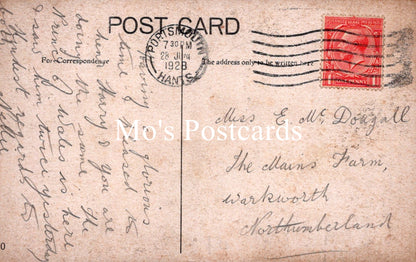 POST CARD
For Correspondence
The address only to be written here
PORTSMOUTH
7 30 PM
28 JUN
1928
HANTS
Having glorious
time pleased to
hear Mary & you are
doing the same. The
Prince of Wales is here
I saw him twice yesterday
Kindest regards to
Miss E Mc Dougall
The Mains Farm,
Warkworth
Northumberland
Mo's Postcards